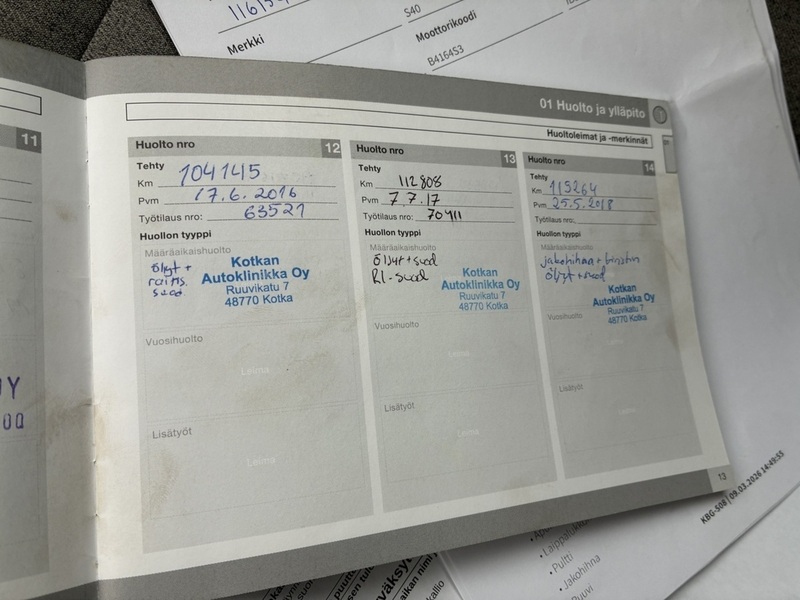 S40
Merkki
Moottorikoodi
B4164S3
01 Huolto ja ylläpito
Huoltoleimat ja -merkinnät
11
Huolto nro 12
Tehty
Km 104145
Pvm 17.6.2016
Työtilaus nro: 63521
Huollon tyyppi
Määräaikaishuolto
öljyt +
raitis
suod.
Kotkan
Autoklinikka Oy
Ruuvikatu 7
48770 Kotka
Vuosihuolto
Leima
Lisätyöt
Leima
Huolto nro 13
Tehty
Km 112808
Pvm 7.7.17
Työtilaus nro: 70411
Huollon tyyppi
Määräaikaishuolto
öljyt+suod
RI-suod
Kotkan
Autoklinikka Oy
Ruuvikatu 7
48770 Kotka
Vuosihuolto
Leima
Lisätyöt
Leima
Huolto nro 14
Tehty
Km 115264
Pvm 25.5.2018
Työtilaus nro:
Huollon tyyppi
Määräaikaishuolto
jakohihna +
öljyt+suod
Kotkan
Autoklinikka Oy
Ruuvikatu 7
48770 Kotka
Vuosihuolto
Leima
Lisätyöt
Leima
13
KBG-508 | 09.03.2026 14:49:55
• Pultti
• Jakohihna